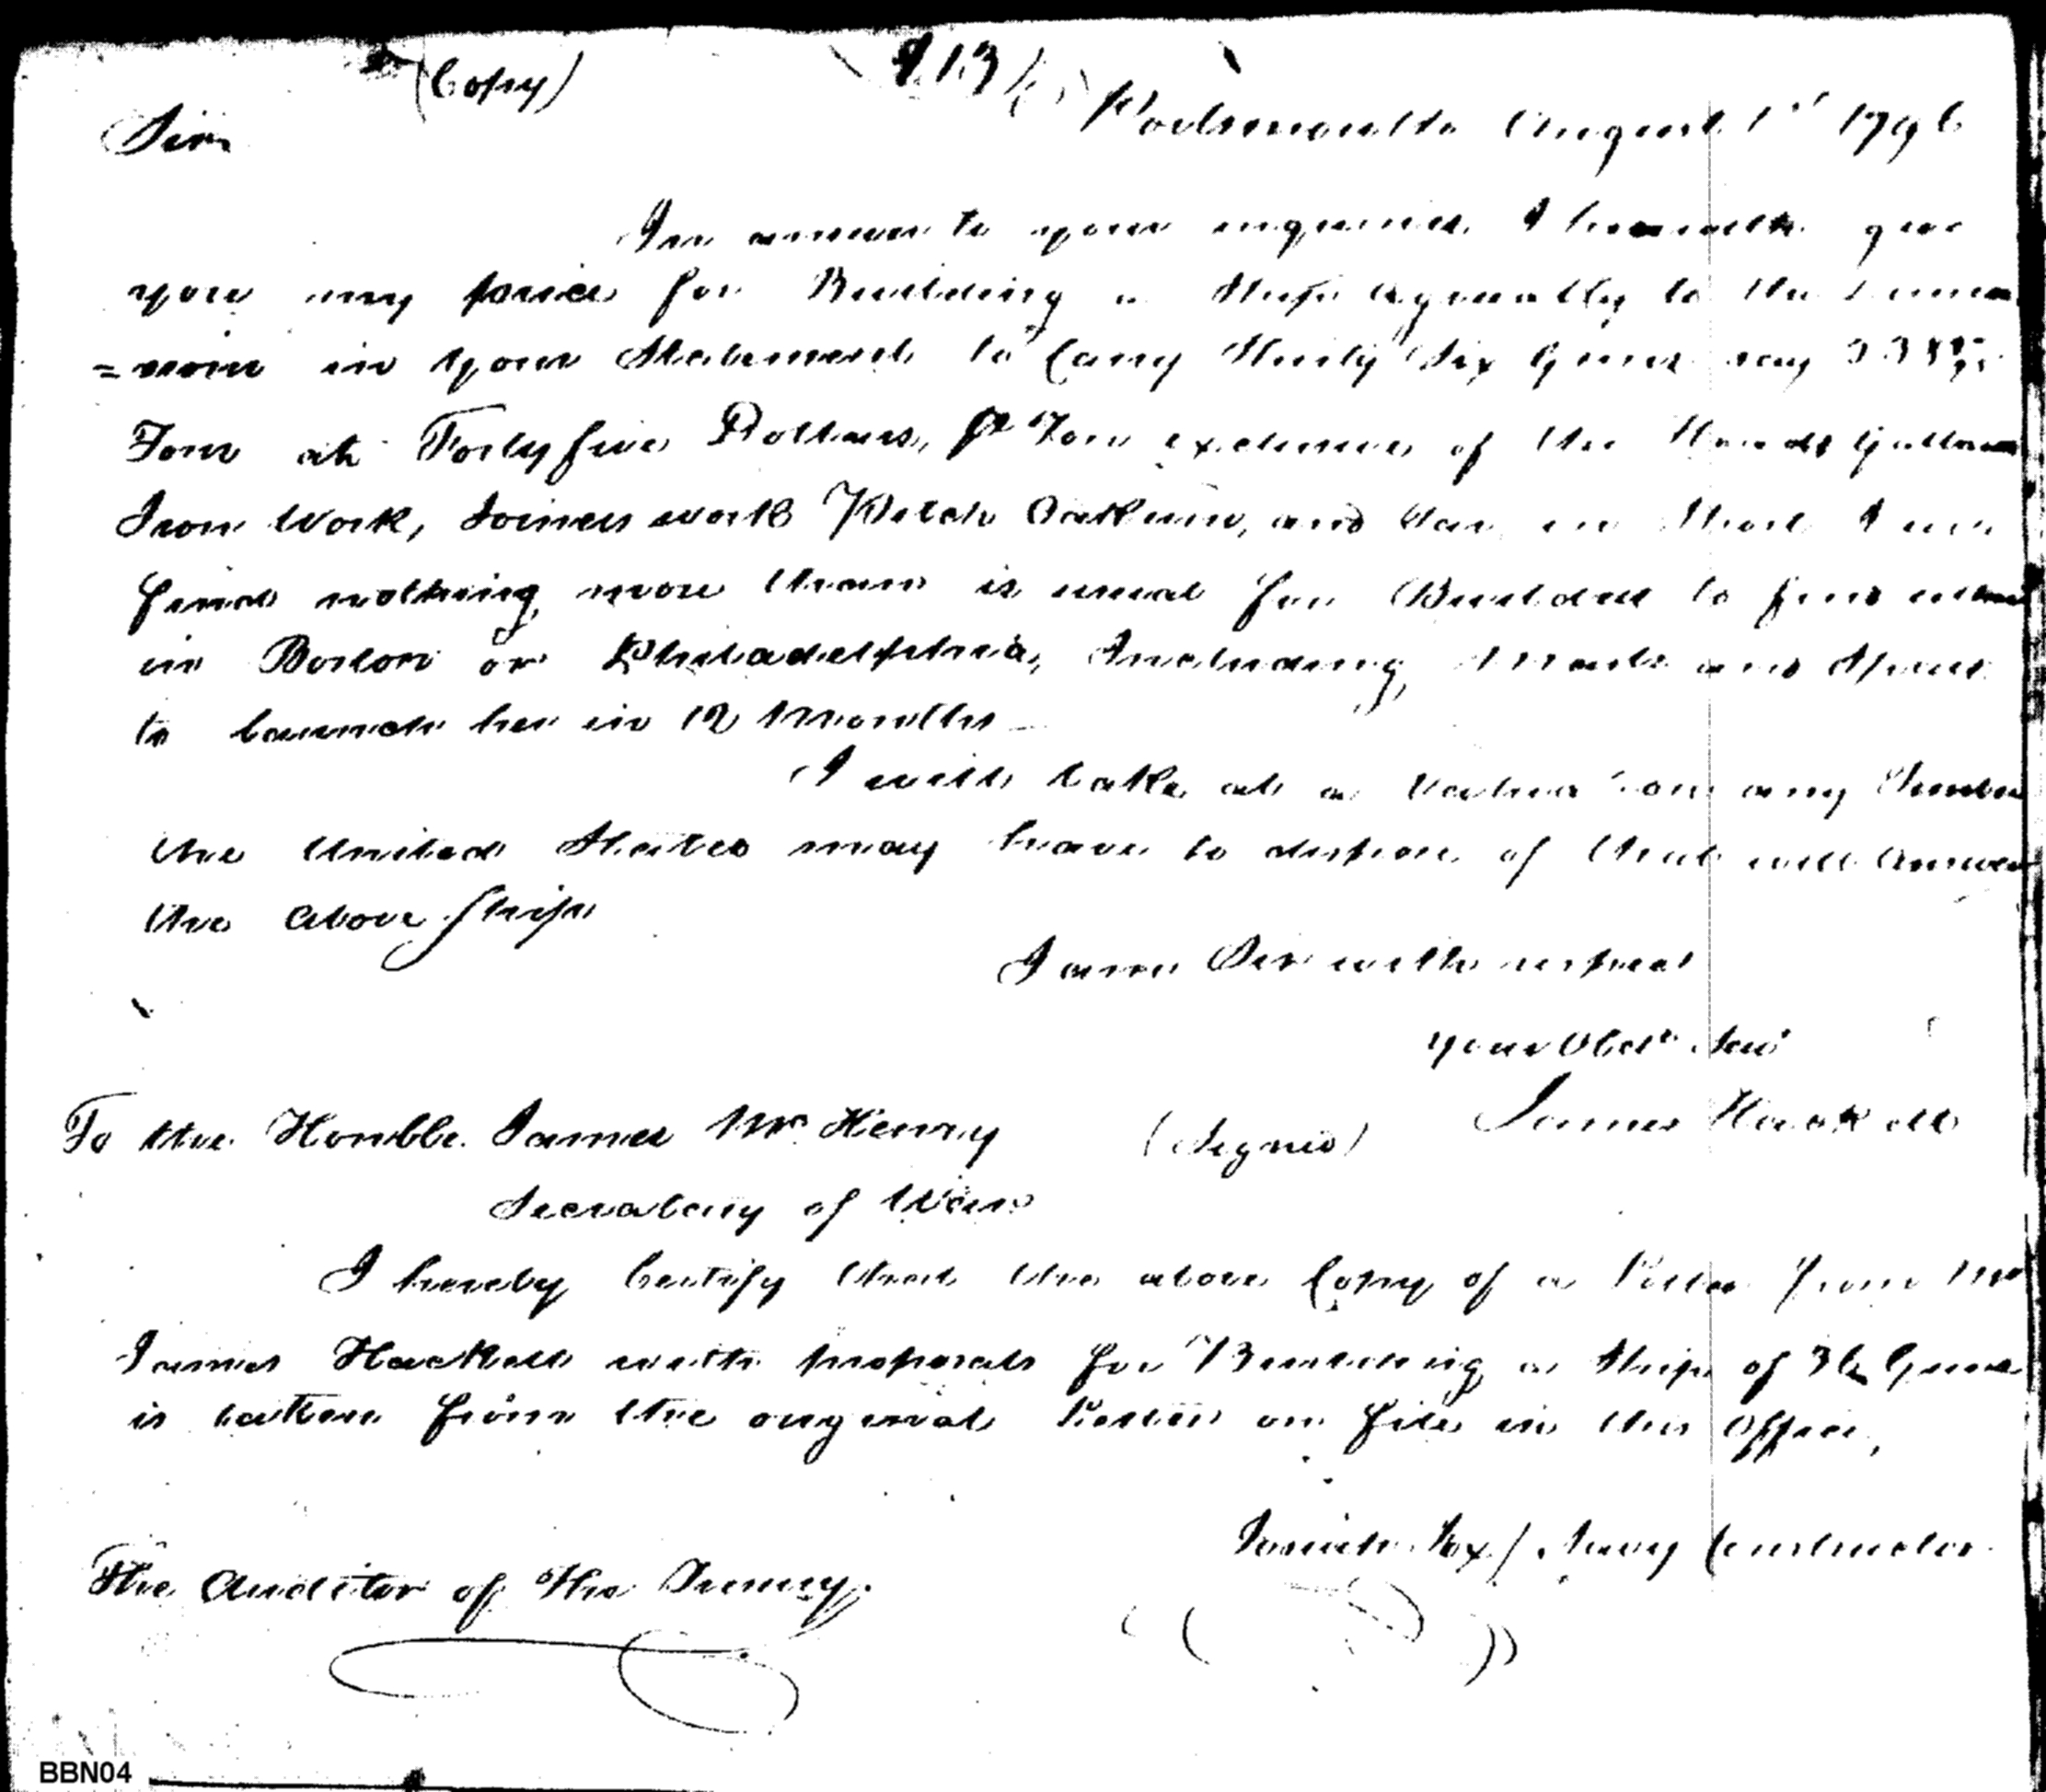 (Copy)
Sir Portsmouth August 1st 1796
In answer to your inquiries I herewith give
you my price for Building a Ship Agreeably to the Dimen
=sions in your Statement to Carry Thirty Six Guns say
Tons at Forty five Dollars, Pr Ton exclusive of the
Iron Work, Joiners work Pitch Oakum, and Tar, in Short I
find nothing more than is usual for Builders to find
in Boston or Philadelphia, Including Masts and Spars
to launch her in 12 Months
I will take at a valuation any Timber
the United States may have to dispose of that will Answer
the above Ship
I am Sir with respect
your Obedt Servt
To the Honble. James McHenry (Signed) James Hackett
Secretary of War
I hereby Certify that the above Copy of a Letter from Mr
James Hackett with proposals for Building a Ship of 36 Guns
is taken from the original Letter on file in this Office,
Josiah Fox / Navy Constructor
The Auditor of the Treasury.
BBN04